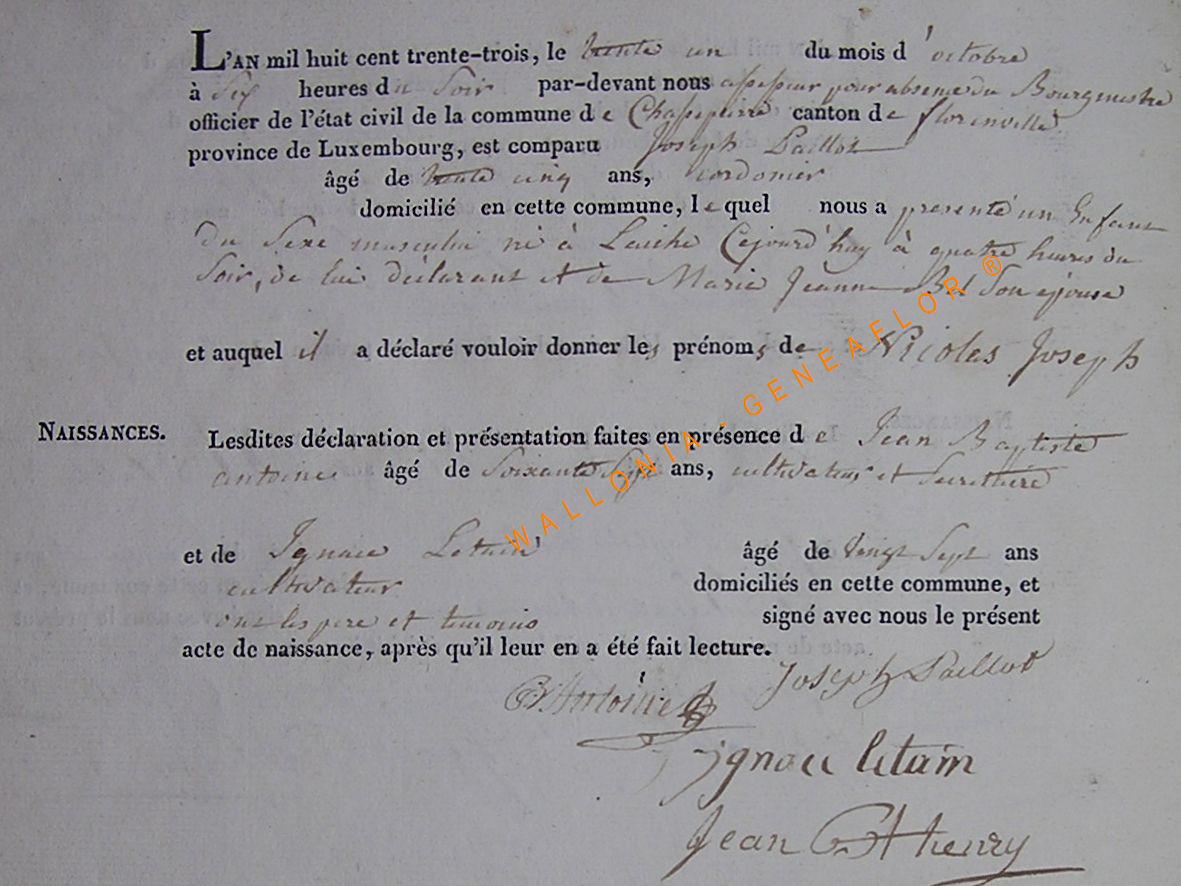 L'AN mil huit cent trente-trois, le trente un du mois d'octobre
à Six heures du Soir par-devant nous assesseur pour absence du Bourgmestre
officier de l'état civil de la commune de Chassepierre canton de florenville
province de Luxembourg, est comparu Joseph Paillot
âgé de trente cinq ans, cordonier
domicilié en cette commune, lequel nous a presenté un Enfant
du Sexe masculin né à Laiche Cejourd'huy à quatre heures du
Soir, de lui déclarant et de Marie Jeanne Bel Son épouse
et auquel il a déclaré vouloir donner les prénoms de Nicolas Joseph
NAISSANCES. Lesdites déclaration et présentation faites en présence de Jean Baptiste
antoine âgé de Soixante ans, cultivateur et Secrettaire
et de Ignace Letain âgé de vingt Sept ans
cultivateur domiciliés en cette commune, et
ont les pere et temoins signé avec nous le présent
acte de naissance, après qu'il leur en a été fait lecture.
Joseph Paillot
Antoine
ignace letain
Jean Bt henry
WALLONIA - GENEAFLOR ®